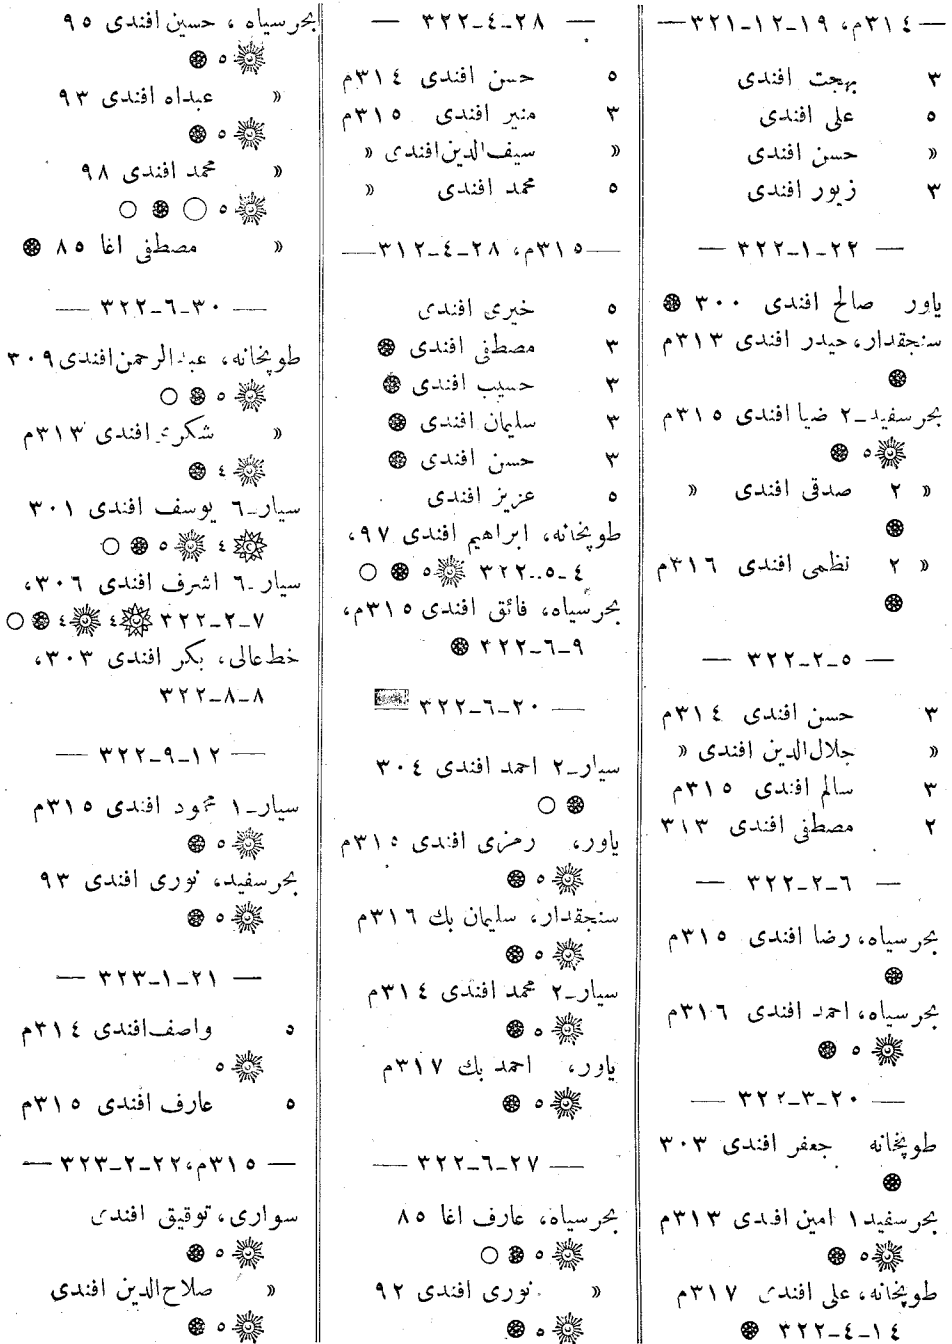 — ٣١٤م، ١٩-١٢-٣٢١ —
٣ بهجت افندى
٥ على افندى
» حسن افندى
٣ زيور افندى
— ٢٢-١-٣٢٢ —
ياور صالح افندى ٣٠٠
سنجقدار، حيدر افندى ٣١٣م
بحر سفيد-٢ ضيا افندى ٣١٥م
٥
» ٢ صدقى افندى »
» ٢ نظمى افندى ٣١٦م
— ٥-٢-٣٢٢ —
٣ حسن افندى ٣١٤م
» جلال الدين افندى »
٣ سالم افندى ٣١٥م
٢ مصطفى افندى ٣١٣
— ٦-٢-٣٢٢ —
بحر سياه، رضا افندى ٣١٥م
بحر سياه، احمد افندى ٣١٦م
٥
— ٢٠-٣-٣٢٢ —
طوپخانه جعفر افندى ٣٠٣
بحر سفيد١ امين افندى ٣١٣م
٥
طوپخانه، على افندى ٣١٧م
١٤-٤-٣٢٢
— ٢٨-٤-٣٢٢ —
٥ حسن افندى ٣١٤م
٣ منير افندى ٣١٥م
» سيف الدين افندى »
٥ محمد افندى »
— ٣١٥م، ٢٨-٤-٣١٢ —
٥ خيرى افندى
٣ مصطفى افندى
٣ حسيب افندى
٣ سليمان افندى
٣ حسن افندى
٥ عزيز افندى
طوپخانه، ابراهيم افندى ٩٧،
٤-٥-٣٢٢ ٥
بحر سياه، فائق افندى ٣١٥م،
٩-٦-٣٢٢
— ٢٠-٦-٣٢٢ —
سيار-٢ احمد افندى ٣٠٤
ياور، رمزى افندى ٣١٥م
٥
سنجقدار، سليمان بك ٣١٦م
٥
سيار-٢ محمد افندى ٣١٤م
٥
ياور، احمد بك ٣١٧م
٥
— ٢٧-٦-٣٢٢ —
بحر سياه، عارف اغا ٨٥
٥
» نورى افندى ٩٢
٥
بحر سياه، حسين افندى ٩٥
٥
» عبداه افندى ٩٣
٥
» محمد افندى ٩٨
٥
» مصطفى اغا ٨٥
— ٣٠-٦-٣٢٢ —
طوپخانه، عبدالرحمن افندى ٣٠٩
٥
» شكرى افندى ٣١٣م
٤
سيار-٦ يوسف افندى ٣٠١
٤ ٥
سيار-٦ اشرف افندى ٣٠٦،
٧-٢-٣٢٢ ٤ ٤
خط عالى، بكر افندى ٣٠٣،
٨-٨-٣٢٢
— ١٢-٩-٣٢٢ —
سيار-١ محمود افندى ٣١٥م
٥
بحر سفيد، نورى افندى ٩٣
٥
— ٢١-١-٣٢٣ —
٥ واصف افندى ٣١٤م
٥
٥ عارف افندى ٣١٥م
— ٣١٥م، ٢٢-٢-٣٢٣ —
سوارى، توقيق افندى
٥
» صلاح الدين افندى
٥